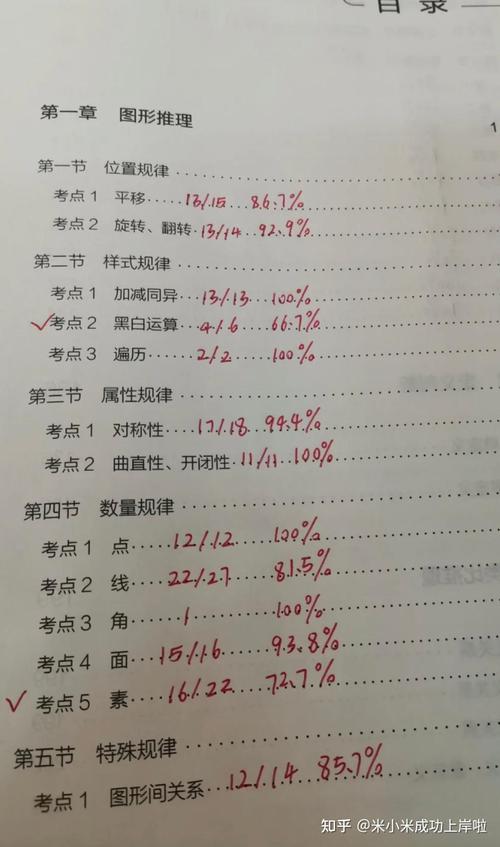 目录
第一章 图形推理
1
第一节 位置规律
考点1 平移 13/15 86.7%
考点2 旋转、翻转 13/14 92.9%
第二节 样式规律
考点1 加减同异 13/13 100%
✓考点2 黑白运算 4/6 66.7%
考点3 遍历 2/2 100%
第三节 属性规律
考点1 对称性 17/18 94.4%
考点2 曲直性、开闭性 11/11 100%
第四节 数量规律
考点1 点 12/12 100%
考点2 线 22/27 81.5%
考点3 角 1 100%
考点4 面 15/16 93.8%
✓考点5 素 16/22 72.7%
第五节 特殊规律
考点1 图形间关系 12/14 85.7%
知乎 @米小米成功上岸啦